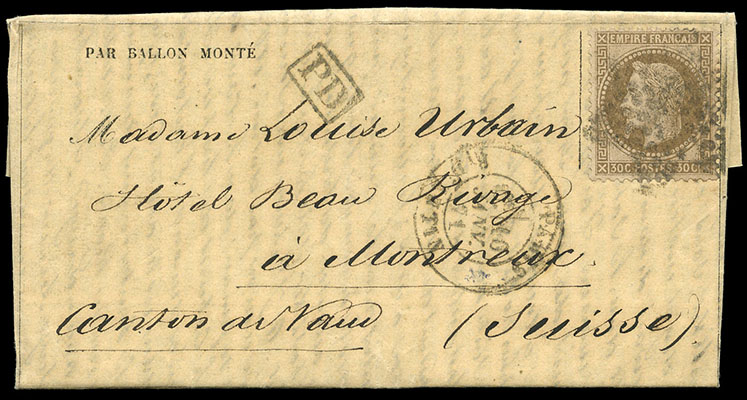 PAR BALLON MONTÉ
PD
EMPIRE FRANÇAIS
30C POSTES 30C
Madame Louise Urbain
Hôtel Beau Rivage
à Montreux
Canton de Vaud (Suisse)
PARIS
JANV.
71